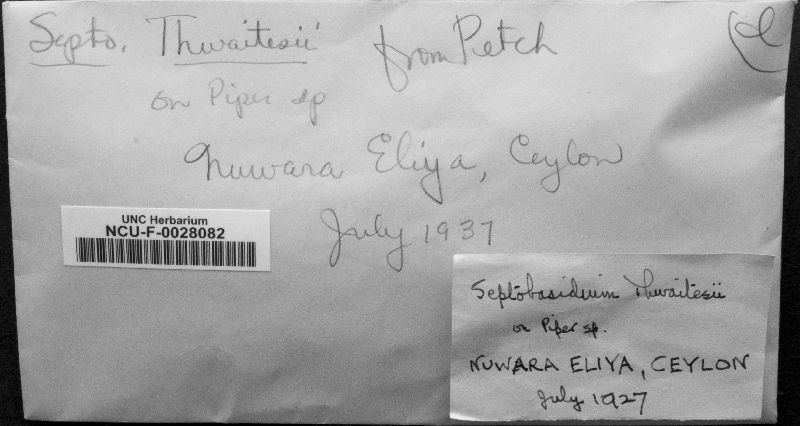 Septo. Thwaitesii from Petch
on Piper sp
Nuwara Eliya, Ceylon
July 1937
UNC Herbarium
NCU-F-0028082
Septobasidium Thwaitesii
on Piper sp.
NUWARA ELIYA, CEYLON
July 1927